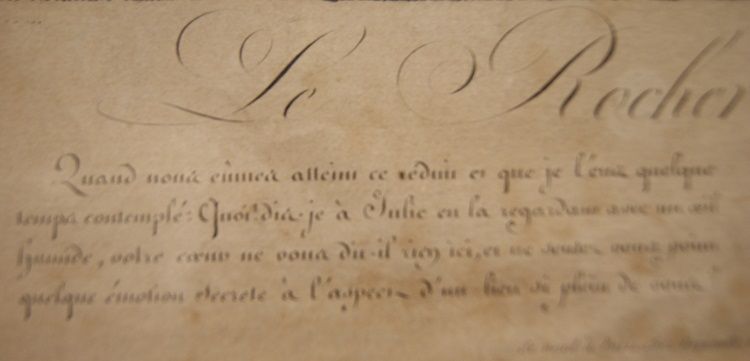 Le Rocher
Quand nous eûmes atteint ce réduit et que je l'eus quelque
temps contemplé: Quoi! dis-je à Julie en la regardant avec un œil
humide, votre cœur ne vous dit-il rien ici, et ne sentez vous point
quelque émotion secrete à l'aspect d'un lieu si plein de vous